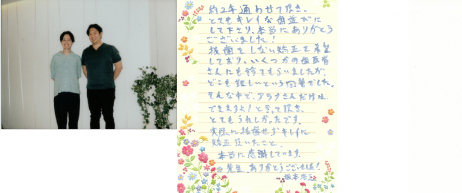 約2年通わせて頂き、
とてもキレイな歯並びに
して下さり、本当にありがとう
ございました！
抜歯をしない矯正を希望
しており、いくつかの歯医者
さんにも診てもらいましたが、
どこも難しいという回答でした。
そんな中で、アラタさんだけは、
できますよ！と言って頂き、
とてもうれしかったです。
実際に抜歯せずキレイに
矯正頂いたこと、
本当に感謝しています。
先生、ありがとうございました！